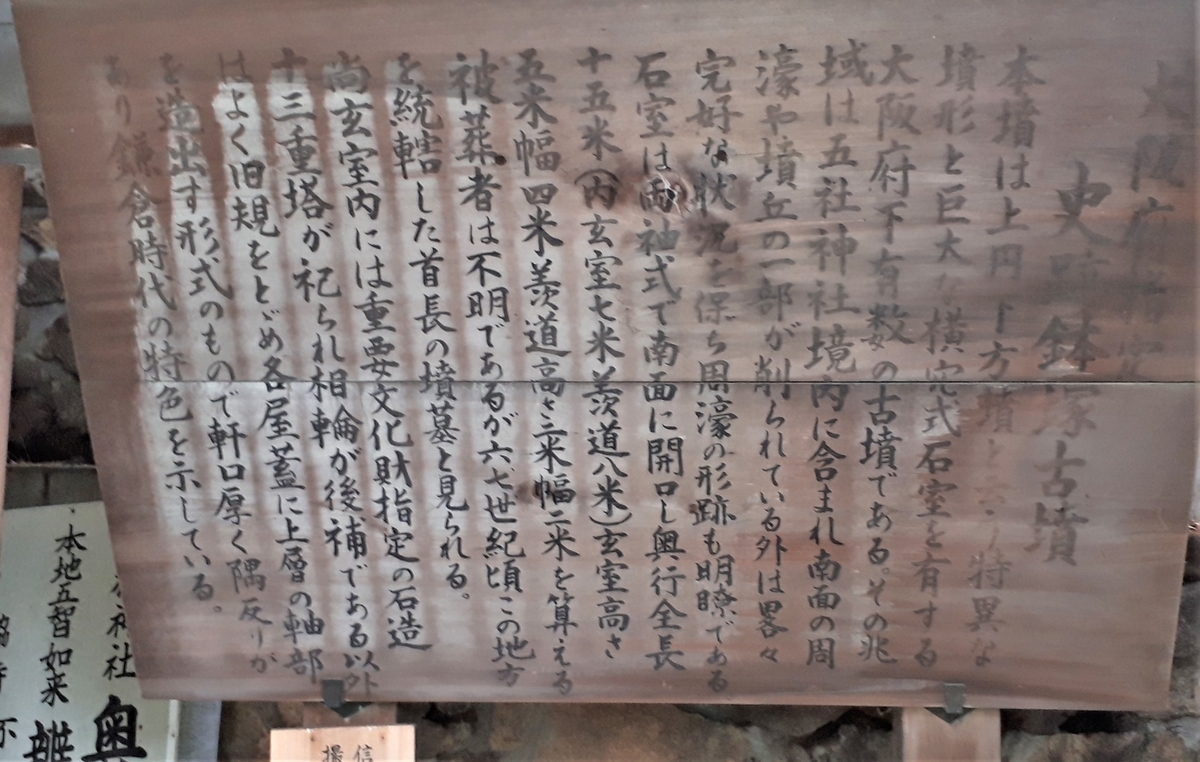 大阪府
史跡鉢塚古墳
本墳は上円下方墳という特異な
墳形と巨大な横穴式石室を有する
大阪府下有数の古墳である。その兆
域は五社神社境内に含まれ南面の周
濠や墳丘の一部が削られている外は畧々
完好な状況を保ち周濠の形跡も明瞭である
石室は両袖式で南面に開口し奥行全長
十五米(内玄室七米羨道八米)玄室高さ
五米幅四米羨道高さ三米幅二米を算える
被葬者は不明であるが六、七世紀頃この地方
を統轄した首長の墳墓と見られる。
尚玄室内には重要文化財指定の石造
十三重塔が祀られ相輪が後補である以外
はよく旧規をとどめ各屋蓋に上層の軸部
を造出す形式のもので軒口厚く隅反りが
あり鎌倉時代の特色を示している。
神社 奥
本地五智如来
信
撮